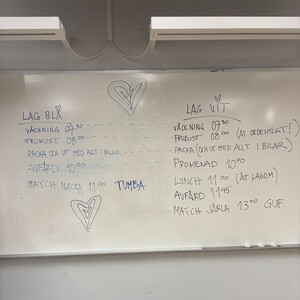 LAG BLÅ
VÄCKNING 07 30
FRUKOST 08 00
PACKA OCH UT MED ALLT I BILAR
AVFÄRD 10 00
MATCH NACKA 11 00 TUMBA
LAG VIT
VÄCKNING 07 30
FRUKOST 08 00 (ÄT ORDENTLIGT!)
PACKA (OCH UT MED ALLT I BILAR)
PROMENAD 10 00
LUNCH 11 00 (ÄT LAGOM)
AVFÄRD 11 45
MATCH JÄRLA 13 00 GUF